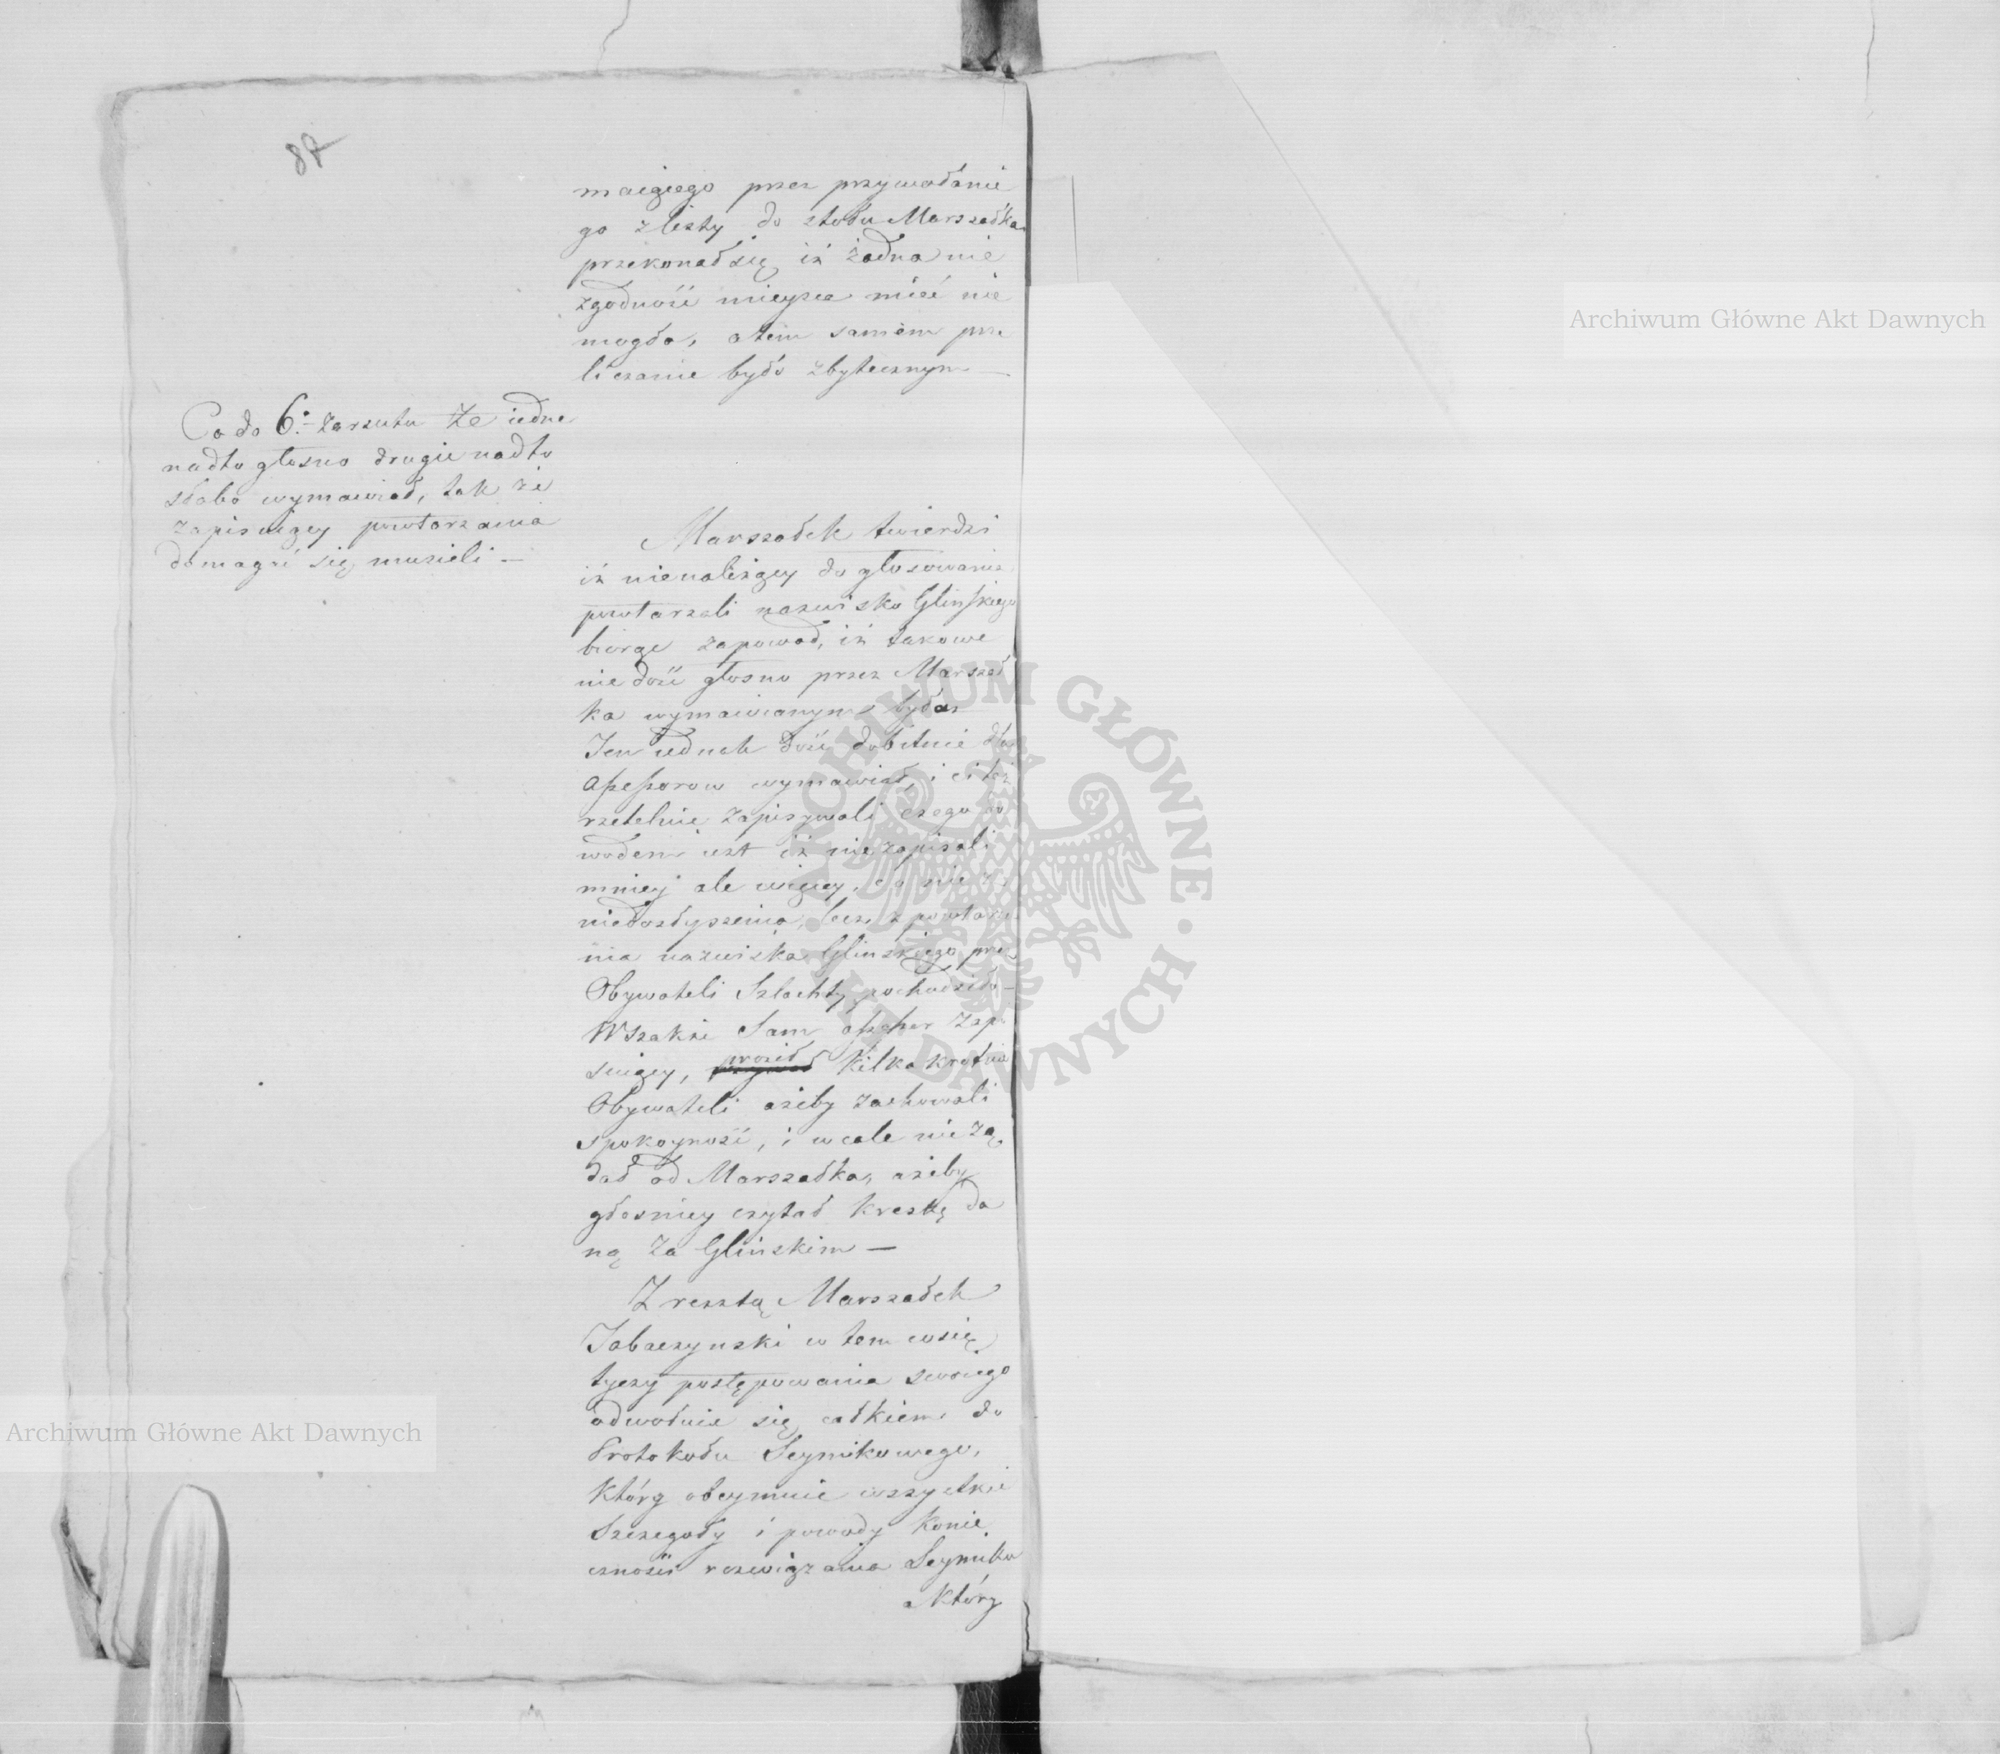 87
maiącego przez przywołanie
go z listy do stołu Marszałka
przekonał się iż żadna nie
zgodność mieysca mieć nie
mogła, a tem samem prze
liczanie było zbytecznym —
Co do 6.° zarzutu Że iedne
nadto głosno drugie nadto
słabo wymawiał, tak że
zapisuiący powtarzania
domagać się musieli —
Marszałek twierdzi
iż nienależący do głosowania
powtarzali nazwisko Glinskiego
biorąc zapowod, iż takowe
nie dość głosno przez Marszał
ka wymawianym było
Ten iednak dość dobitnie dla
assessorow wymawiał, i ci też
rzetelnie zapisywali czego do
wodem iest iż niezapisali
mniey ale więcey, co nie z
niedosłyszenia, lecz z powtarza
nia nazwiska Glinskiego przez
Obywateli Szlachty pochodziło —
Wszakże Sam assessor zapi
suiący, prosił kilkakrotnie
Obywateli ażeby zachowali
spokoyność, i wcale nie żą
dał od Marszałka, ażeby
głosniey czytał kreskę da
ną za Glińskim —
Z resztą Marszałek
Jabaczynski w tem co się
tyczy postępowania swoiego
odwołuie się całkiem do
Protokołu Seymikowego,
który obeymuie wszystkie
Szczegóły i powody konie
cznosci rozwiązania Seymiku
Który
Archiwum Główne Akt Dawnych
Archiwum Główne Akt Dawnych
ARCHIWUM GŁÓWNE AKT DAWNYCH